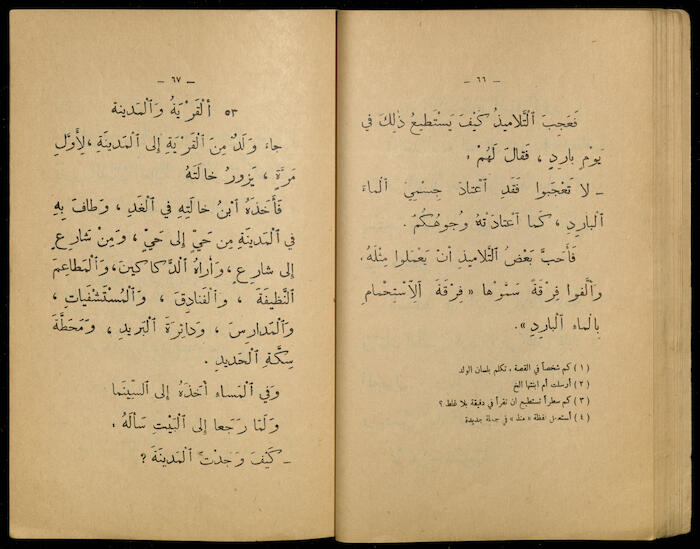 – ٦٦ –
فَعَجِبَ ٱلتَّلاميذُ كَيْفَ يَسْتَطيعُ ذٰلِكَ في
يَوْمٍ بارِدٍ ، فَقالَ لَهُمْ :
ـ لا تَعْجَبوا فَقَدِ ٱعْتادَ جِسْمِيَ ٱلماءَ
ٱلْبارِدَ ، كَما ٱعْتادَتْهُ وُجوهُكُمْ .
فَأَحَبَّ بَعْضُ ٱلتَّلاميذِ أَنْ يَعْمَلوا مِثْلَهُ.
وَأَلَّفوا فِرْقَةً سَمَّوْها « فِرْقَةَ ٱلِٱسْتِحْمامِ
بِالْماءِ ٱلْبارِدِ ».
( ١ ) كم شخصاً في القصة . تكلم بلسان الولد
( ٢ ) أرسلت أم ابنتها الخ
( ٣ ) كم سطراً تستطيع ان تقرأ في دقيقة بلا غلط ؟
( ٤ ) أستعمل لفظة « منذ » في جملة جديدة
– ٦٧ –
٥٣ ٱلْقَرْيَةُ وَٱلْمَدينة
جاءَ وَلَدٌ مِنَ ٱلْقَرْيَةِ إِلى ٱلْمَدينَةِ ، لِأَوَّلِ
مَرَّةٍ ، يَزورُ خالَتَهُ
فَأَخَذَهُ ٱبْنُ خالَتِهِ في ٱلْغَدِ ، وَطافَ بِهِ
في ٱلْمَدينَةِ مِن حَيٍّ إِلى حَيٍّ ، وَمِنْ شارِعٍ
إِلى شارِعٍ ، وَأَراهُ ٱلدَّكاكينَ ، وَٱلْمَطاعِمَ
ٱلنَّظيفَةَ ، وَٱلْفَنادِقَ ، وَٱلْمُسْتَشْفَياتِ ،
وَٱلْمَدارِسَ ، وَدائِرَةَ ٱلْبَريدِ ، وَمَحَطَّةَ
سِكَّةِ ٱلْحَديدِ .
وَفي ٱلْمَساءِ أَخَذَهُ إِلى ٱلسّينَما
وَلَمّا رَجَعا إِلى ٱلْبَيْتِ سَأَلَهُ :
ـ كَيْفَ وَجَدْتَ ٱلْمَدينَةَ ؟